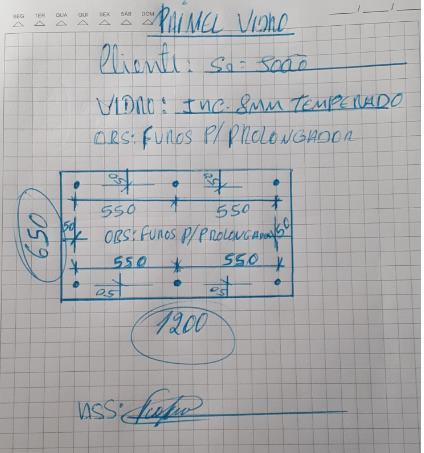 SEG TER QUA QUI SEX SÁB DOM
PAINEL VIDRO
Cliente: Sr João
VIDRO: INC. 8MM TEMPERADO
OBS: FUROS P/ PROLONGADOR
50 50
550 550
50 OBS: FUROS P/ PROLONGADOR 50
650
550 550
50 50
1200
ASS: